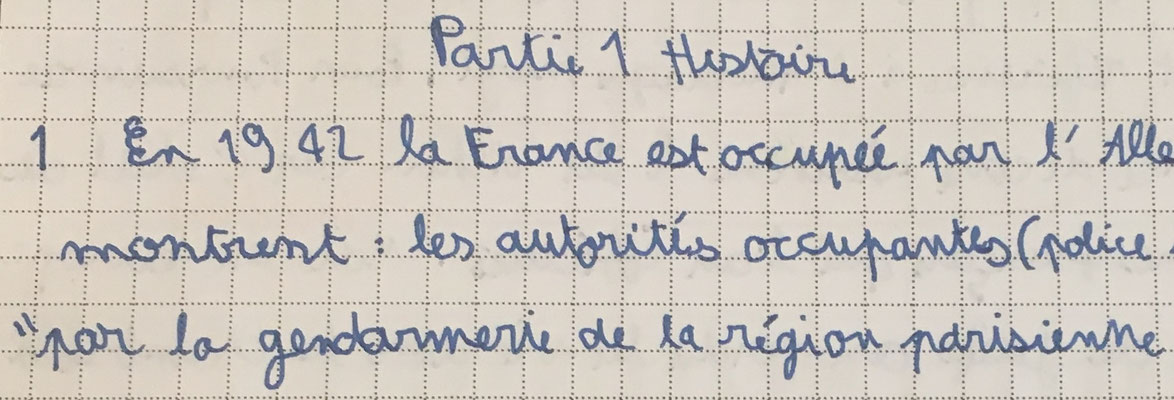 Partie 1 Histoire
1 En 1942 la France est occupée par l'Alle
montrent : les autorités occupantes (police
"par la gendarmerie de la région parisienne